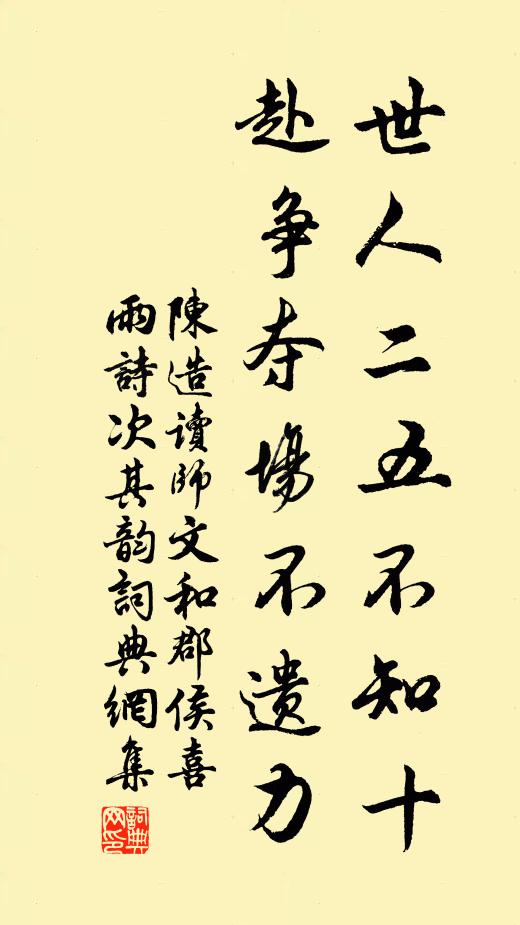 世人二五不知十
赴争夺場不遗力
陳造讀師文和郡侯喜
雨詩次其韵詞典網集
詞典网印